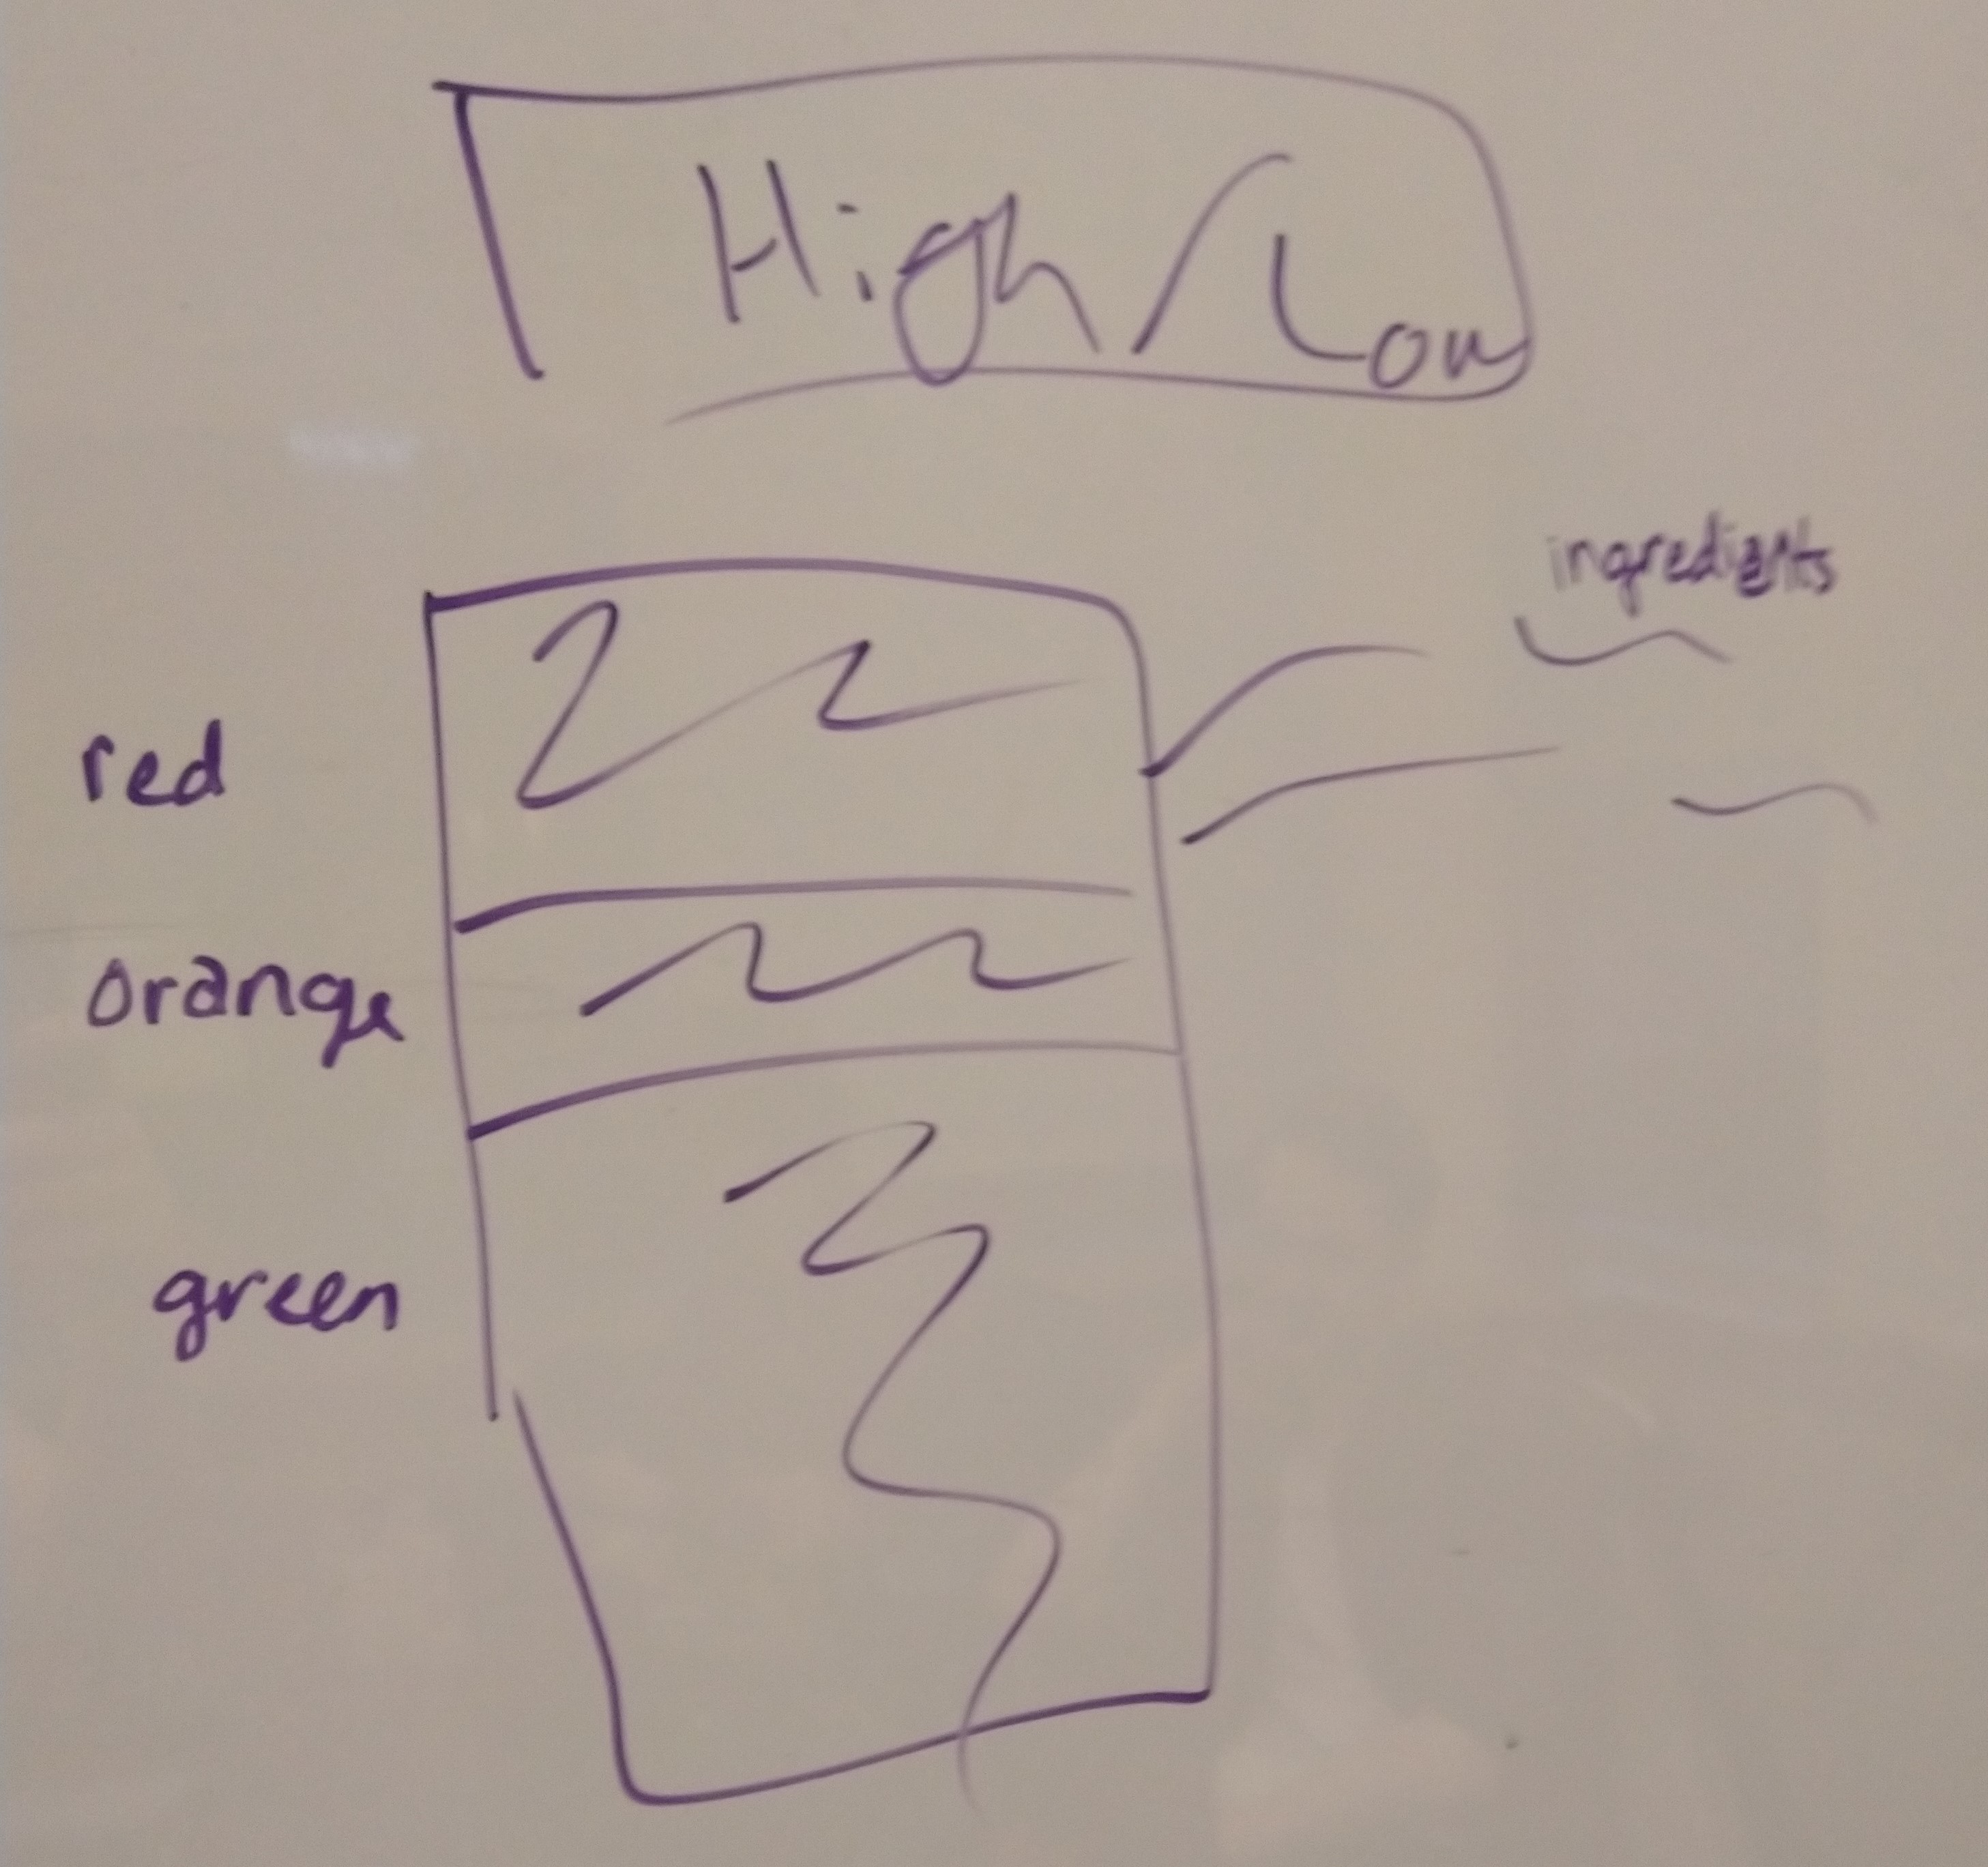 High/Low
ingredients
red
orange
green